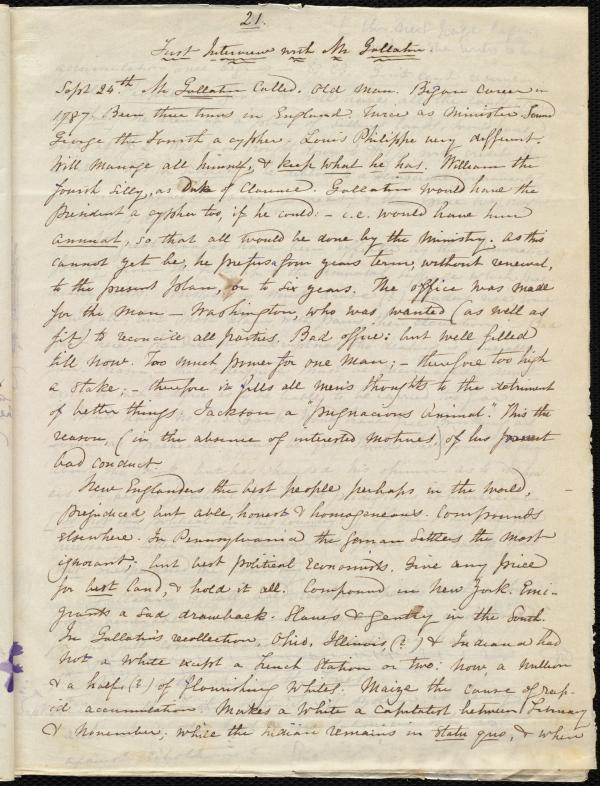 21.
First Interview with Mr Gallatin.
Sept 24th. Mr Gallatin called. Old man. Began career in
1787. Been three times in England. Twice as Minister. Found
George the Fourth a cypher. Louis Philippe very different.
Will manage all himself, & keep what he has. William the
Fourth silly, as Duke of Clarence. Gallatin would have the
President a cypher too, if he could: – i.e. would have him
annual, so that all would be done by the ministry. As this
cannot yet be, he prefers a four years term, without renewal,
to the present plan, or to six years. The office was made
for the man – Washington, who was wanted (as well as
fit) to reconcile all parties. Bad office: but well filled
till now. Too much power for one man; – therefore too high
a stake; – therefore it fills all men's thoughts to the detriment
of better things. Jackson a "pugnacious animal." This the
reason, (in the absence of interested motives,) of his present
bad conduct.
New Englanders the best people, perhaps in the world,
prejudiced but able, honest & homogeneous. Compounds
elsewhere. In Pennsylvania the German Settlers the most
ignorant, but best Political Economists. Give any price
for best land, & hold it all. Compound in New York. Emi-
grants a sad drawback. Slaves & gentry in the South.
In Gallatin's recollection, Ohio, Illinois (?) & Indiana had
not a white except a French Station or two: now, a million
& a half (?) of flourishing whites. Maize the cause of rap-
id accumulation. Makes a white a capitalist between February
& November, while the Indian remains in statu quo, & when